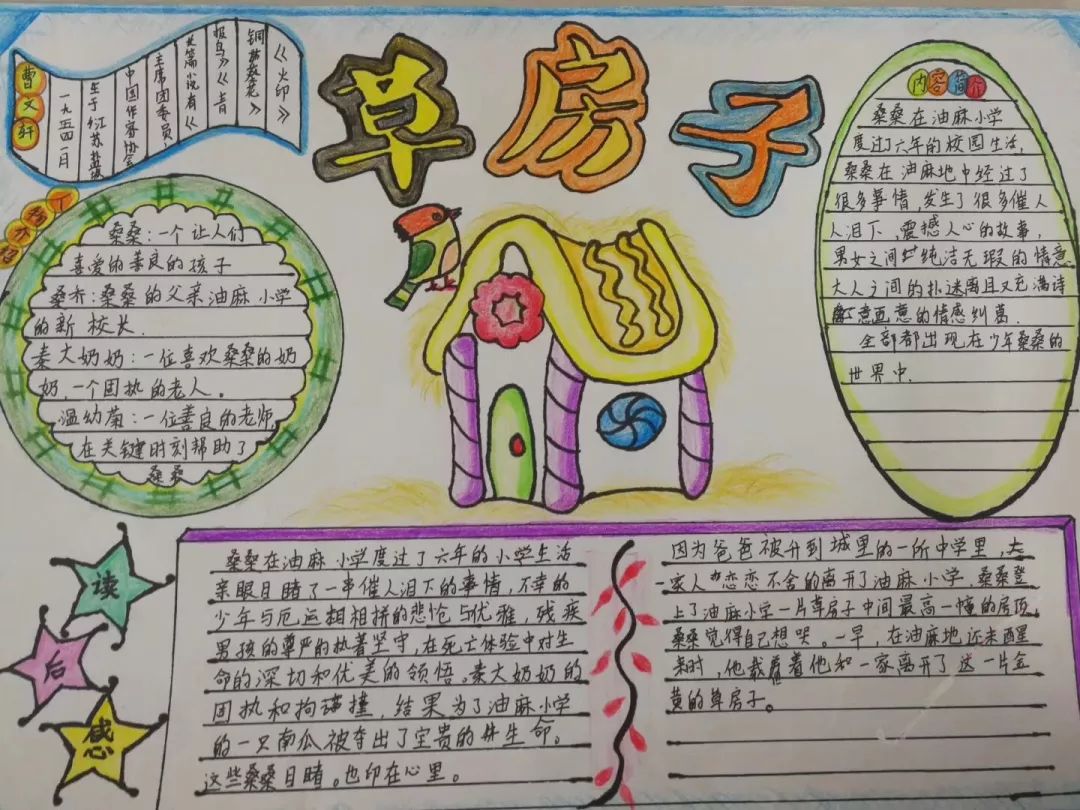 草房子
曹文轩
一九五四一日
生于江苏盐城
中国作家协会
主席团委员,
长篇小说有《
报鸟》《青
铜葵葵花》
《火印》
人物介绍
桑桑:一个让人们
喜爱的善良的孩子
桑乔:桑桑的父亲,油麻小学
的新校长.
秦大奶奶:一位喜欢桑桑的奶
奶,一个固执的老人。
温幼菊:一位善良的老师,
在关键时刻帮助了
桑桑
内容简介
桑桑在油麻小学
度过了六年的校园生活,
桑桑在油麻地中经过了
很多事情,发生了很多催人
人泪下、震撼人心的故事,
男女之间纯洁无瑕的情意
大人之间的扑迷离且又充满诗
意画意的情感纠葛.
全部都出现在少年桑桑的
世界中.
读后感
桑桑在油麻小学度过了六年的小学生活
亲眼目睹了一串催人泪下的事情,不幸的
少年与厄运相相拼的悲怆与优雅,残疾
男孩的尊严的执著坚守,在死亡体验中对生
命的深切和优美的领悟。秦大奶奶的
固执和拘撞,结果为了油麻小学
的一只南瓜被夺出了宝贵的生命。
这些桑桑目睹。也印在心里。
因为爸爸被升到城里的一所中学里,大
家人恋恋不舍的离开了油麻小学,桑桑登
上了油麻小学一片草房子中间最高一幢的房顶,
桑桑觉得自己想哭。一早,在油麻地还未醒
来时,他载着他和一家离开了这一片金
黄的草房子。